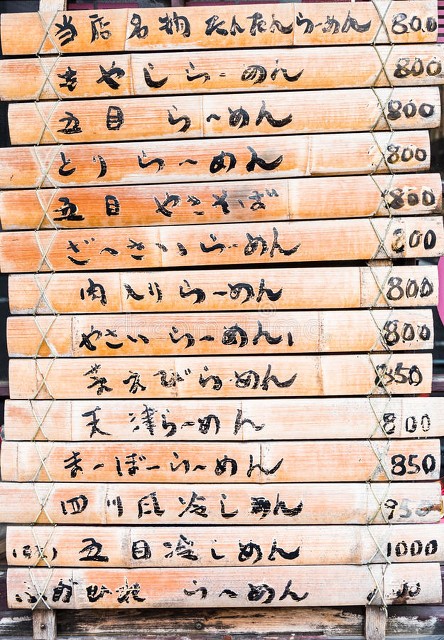 当店名物 たんたんらーめん 800
もやしらーめん 800
五目 らーめん 800
とりらーめん 800
五目 やきそば 800
ざーさいらーめん 800
肉入りらーめん 800
やさいらーめん 800
えびらーめん 850
天津らーめん 800
まーぼーらーめん 850
四川風冷しめん
五目冷しめん 1000
ふかひれ らーめん